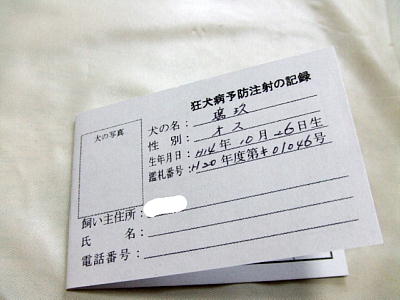 狂犬病予防注射の記録
犬の写真
犬の名：瑞玖
性別：オス
生年月日：H14年10月26日生
鑑札番号：H20年度第*01046号
飼い主住所：
氏名：
電話番号：